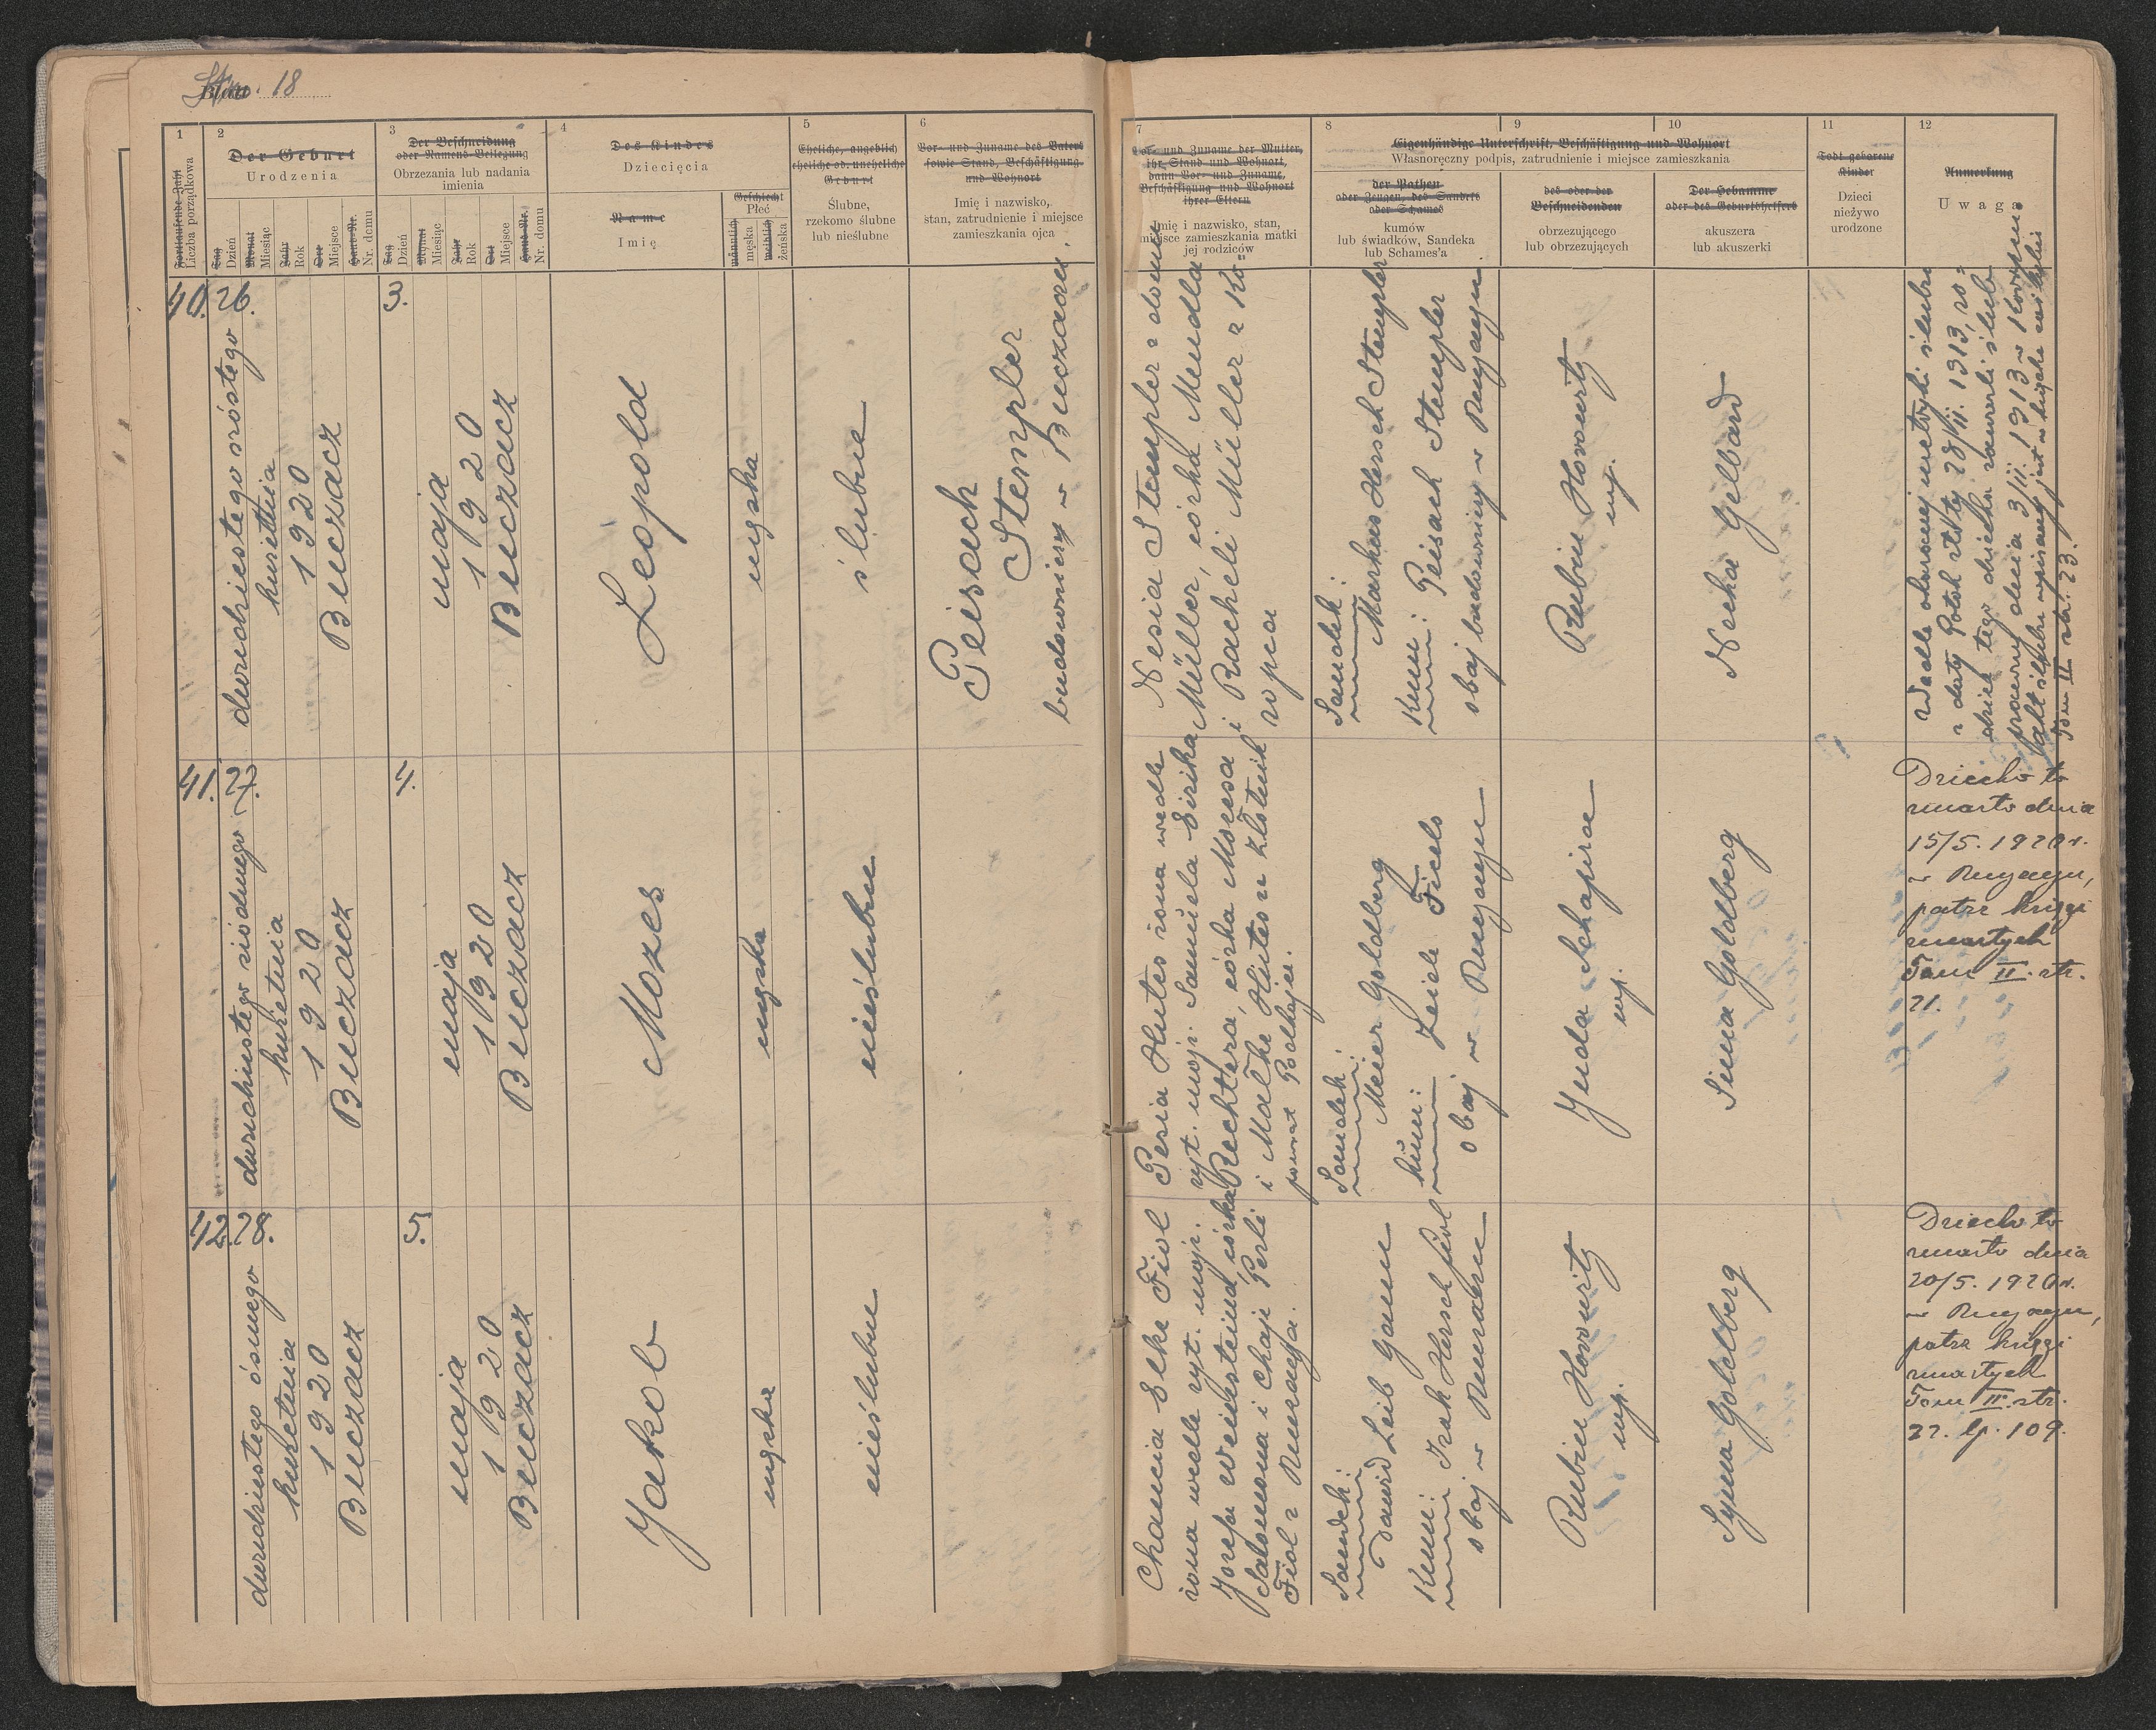 Str. 18
1
2
3
4
5
6
Fortlaufende Zahl
Liczba porządkowa
Der Geburt
Urodzenia
Der Beschneidung
oder Namens-Beilegung
Obrzezania lub nadania
imienia
Des Kindes
Dziecięcia
Name
Imię
Geschlecht
Płeć
männlich
męska
weiblich
żeńska
Eheliche, angeblich
eheliche od. uneheliche
Geburt
Ślubne,
rzekomo ślubne
lub nieślubne
Vor- und Zuname des Vaters
sowie Stand, Beschäftigung
und Wohnort
Imię i nazwisko,
stan, zatrudnienie i miejsce
zamieszkania ojca
Tag
Dzień
Monat
Miesiąc
Jahr
Rok
Ort
Miejsce
Haus-Nr.
Nr. domu
Tag
Dzień
Monat
Miesiąc
Jahr
Rok
Ort
Miejsce
Haus-Nr.
Nr. domu
7
8
9
10
11
12
Vor- und Zuname der Mutter,
ihr Stand und Wohnort,
dann Vor- und Zuname,
Beschäftigung und Wohnort
ihrer Eltern
Imię i nazwisko, stan,
miejsce zamieszkania matki
jej rodziców
Eigenhändige Unterschrift, Beschäftigung und Wohnort
Własnoręczny podpis, zatrudnienie i miejsce zamieszkania
der Pathen
oder Zeugen, des Sandeks
oder Schames
kumów
lub świadków, Sandeka
lub Schames'a
des oder der
Beschneidenden
obrzezującego
lub obrzezujących
Der Hebamme
oder des Geburtshelfers
akuszera
lub akuszerki
Todt geborene
Kinder
Dzieci
nieżywo
urodzone
Anmerkung
Uwaga
40.
26.
dwudziestego szóstego
kwietnia
1920
Buczacz
3.
maja
1920
Buczacz
Leopold
męska
ślubne
Peisach
Stempler
budowniczy w Buczaczu.
Nesia Stempler z domu
Müller, córka Mendla
i Racheli Müller z Ko-
ropca
Sandek:
Markus Hersch Stempler
Kum: Peisach Stempler
obaj budowniczy w Buczaczu
Rubin Horowitz
mp.
Necha Gelbard
Wedle okazanej metryki ślubu
z daty Potok złoty 28/II. 1313, ro-
dzice tego dziecka zawarli ślub
prawny dnia 3/II. 1913 w
Tom II str. 23.
41.
27.
dwudziestego siódmego
kwietnia
1920
Buczacz
4.
maja
1920
Buczacz
Mozes
męska
nieślubne
Pesia Hutes żona wedle
ryt. mojż. Samuela Sisika
Rechtera, córka Mozesa
i Małke Hutes z Złotnik
powiat Podhajce.
Sandek:
Meier Goldberg
kum: Zeide Fiels
obaj w Buczaczu
Juda Schapira
mp.
Sima Goldberg
Dziecko to
zmarło dnia
15/5. 1920 r.
w Buczaczu,
patrz księgi
zmarłych
Tom II. str.
21.
42.
28.
dwudziestego ósmego
kwietnia
1920
Buczacz
5.
maja
1920
Buczacz
Jakob
męska
nieślubne
Chancia Elke Fiol
żona wedle ryt. mojż.
Josefa Weinsteina, córka
Salomona i Chaje Perli
Fiol z Buczacza.
Sandek:
Dawid Leib Gann
Kum: Izak Hersch Fiol
obaj w Buczaczu
Rubin Horowitz
mp.
Syma Goldberg
Dziecko to
zmarło dnia
20/5. 1920 r.
w Buczaczu,
patrz księgi
zmarłych
Tom II. str.
22. lp. 109.